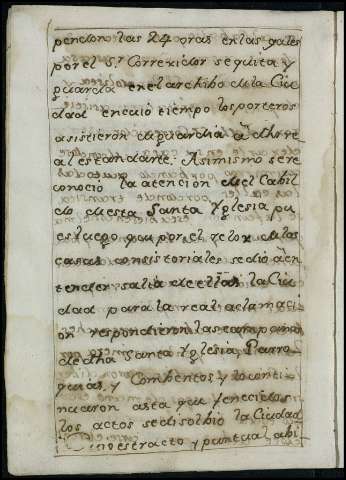 pendon las 24 oras en las quales
por el Sr. Correxidor se quita y
guarda en el archibo de la Ciu
dad en cuio tiempo los porteros
asistieron de guardia a dho rre
al estandarte. Asimismo se re
conocio la atencion del Cabil
do de esta Santa Yglesia pu
es luego que por el relox de las
casas consistoriales se dio a en
tender salia de ellas la Ciu
dad para la real aclamaci
on respondieron las campanas
de dha Santa Yglesia Parro
quias, y Combentos y lo conti
nuaron asta que fenecidos
los actos se disolbio la Ciudad
estracto y puntual abi